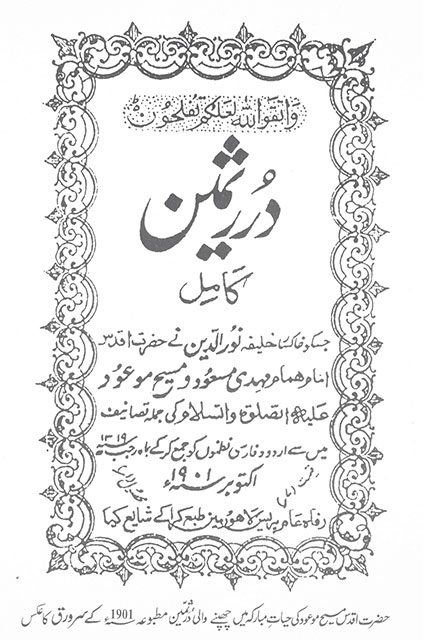 واتقوا الله لعلكم تفلحون
دُرِّ ثمین
کامل
جسکو خاکسار خلیفہ نور الدین نے حضرت اقدس
امام همام مہدی مسعود و مسیح موعود
علیہ الصلوٰۃ والسلام کی جملہ تصانیف
میں سے اردو و فارسی نظموں کو جمع کر کے بماہ رجب ۱۳۱۹ھ
اکتوبر ۱۹۰۱ء
رفاہ عام پریس لاہور میں طبع کرا کے شایع کیا
حضرت اقدس مسیح موعود کی حیات مبارکہ میں چھپنے والی درثمین مطبوعہ 1901ء کے سرورق کا عکس